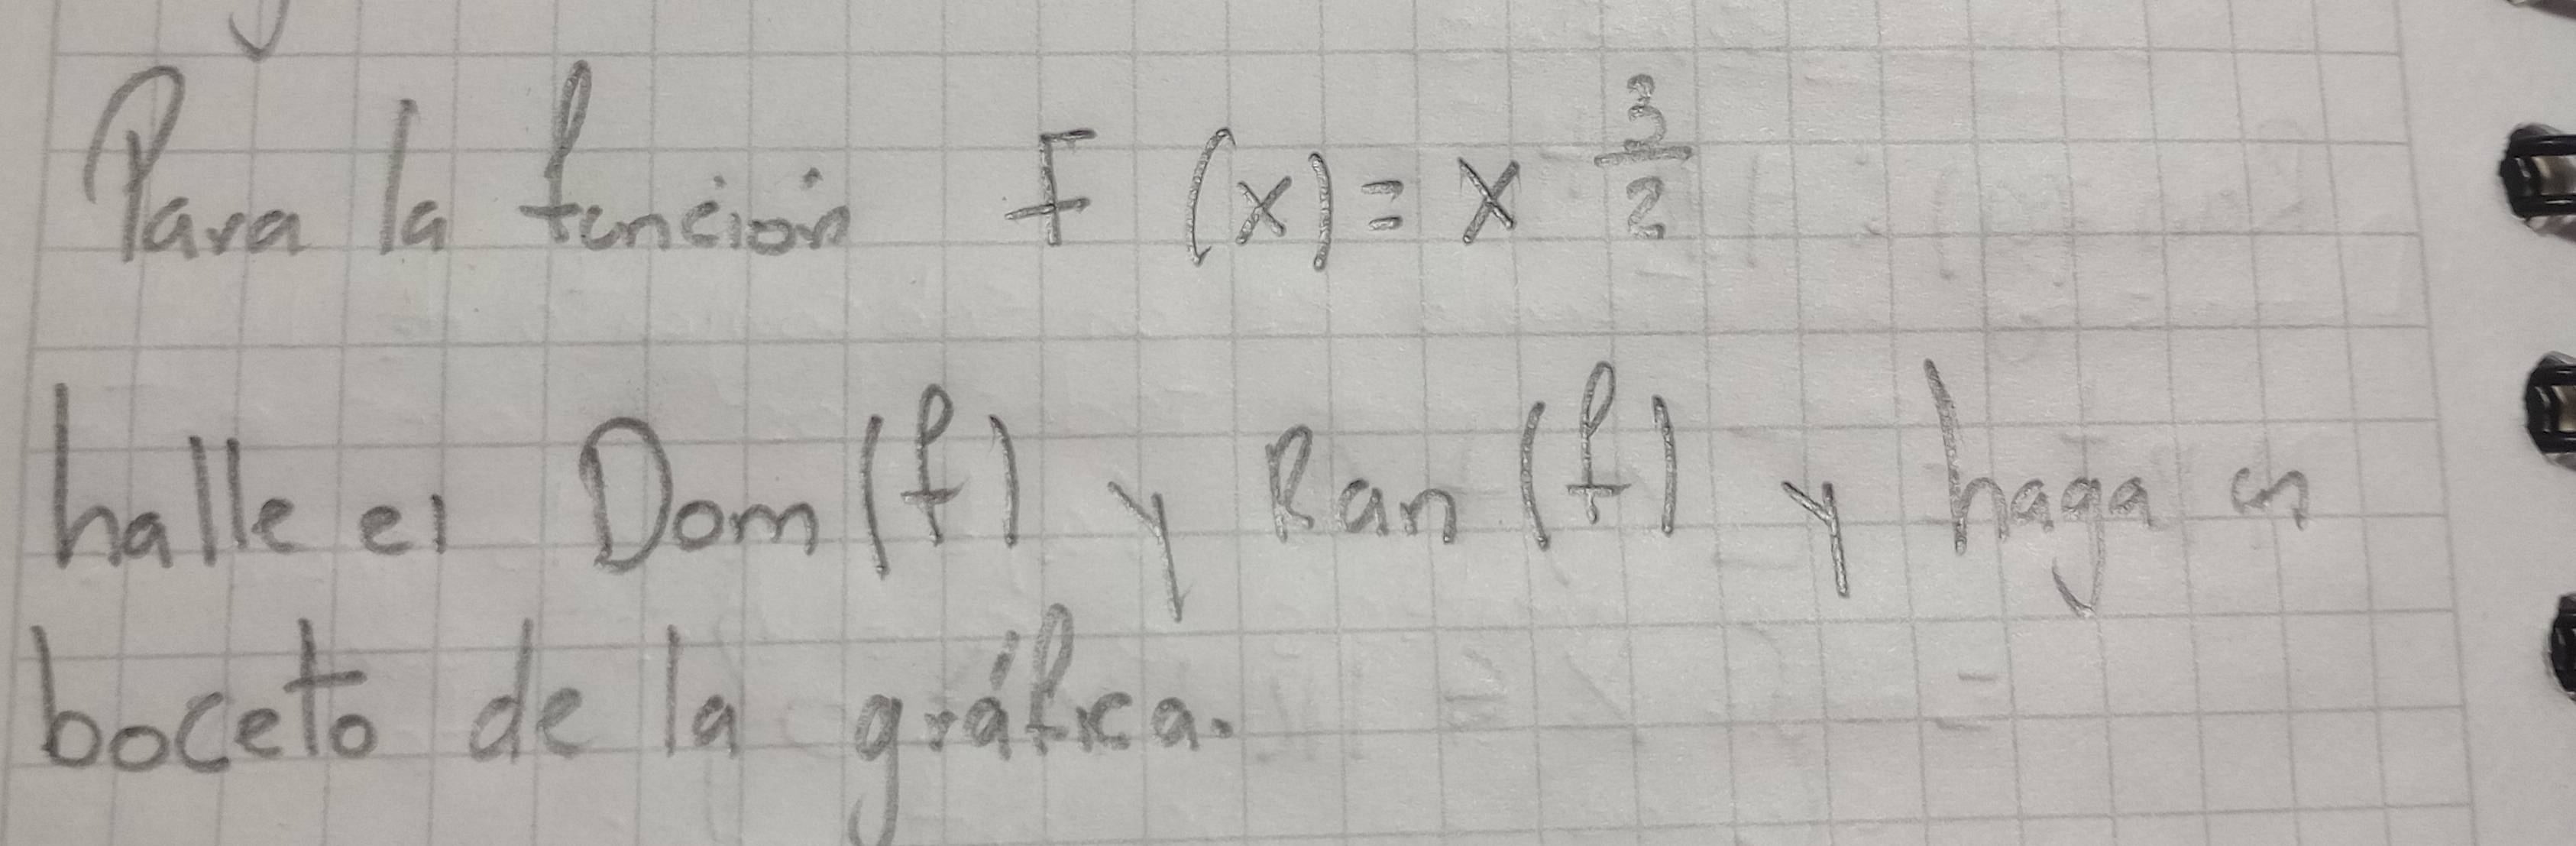 Para la función F (x) = x^{3/2}
halle el Dom (f) y Ran (f) y haga un
boceto de la gráfica.